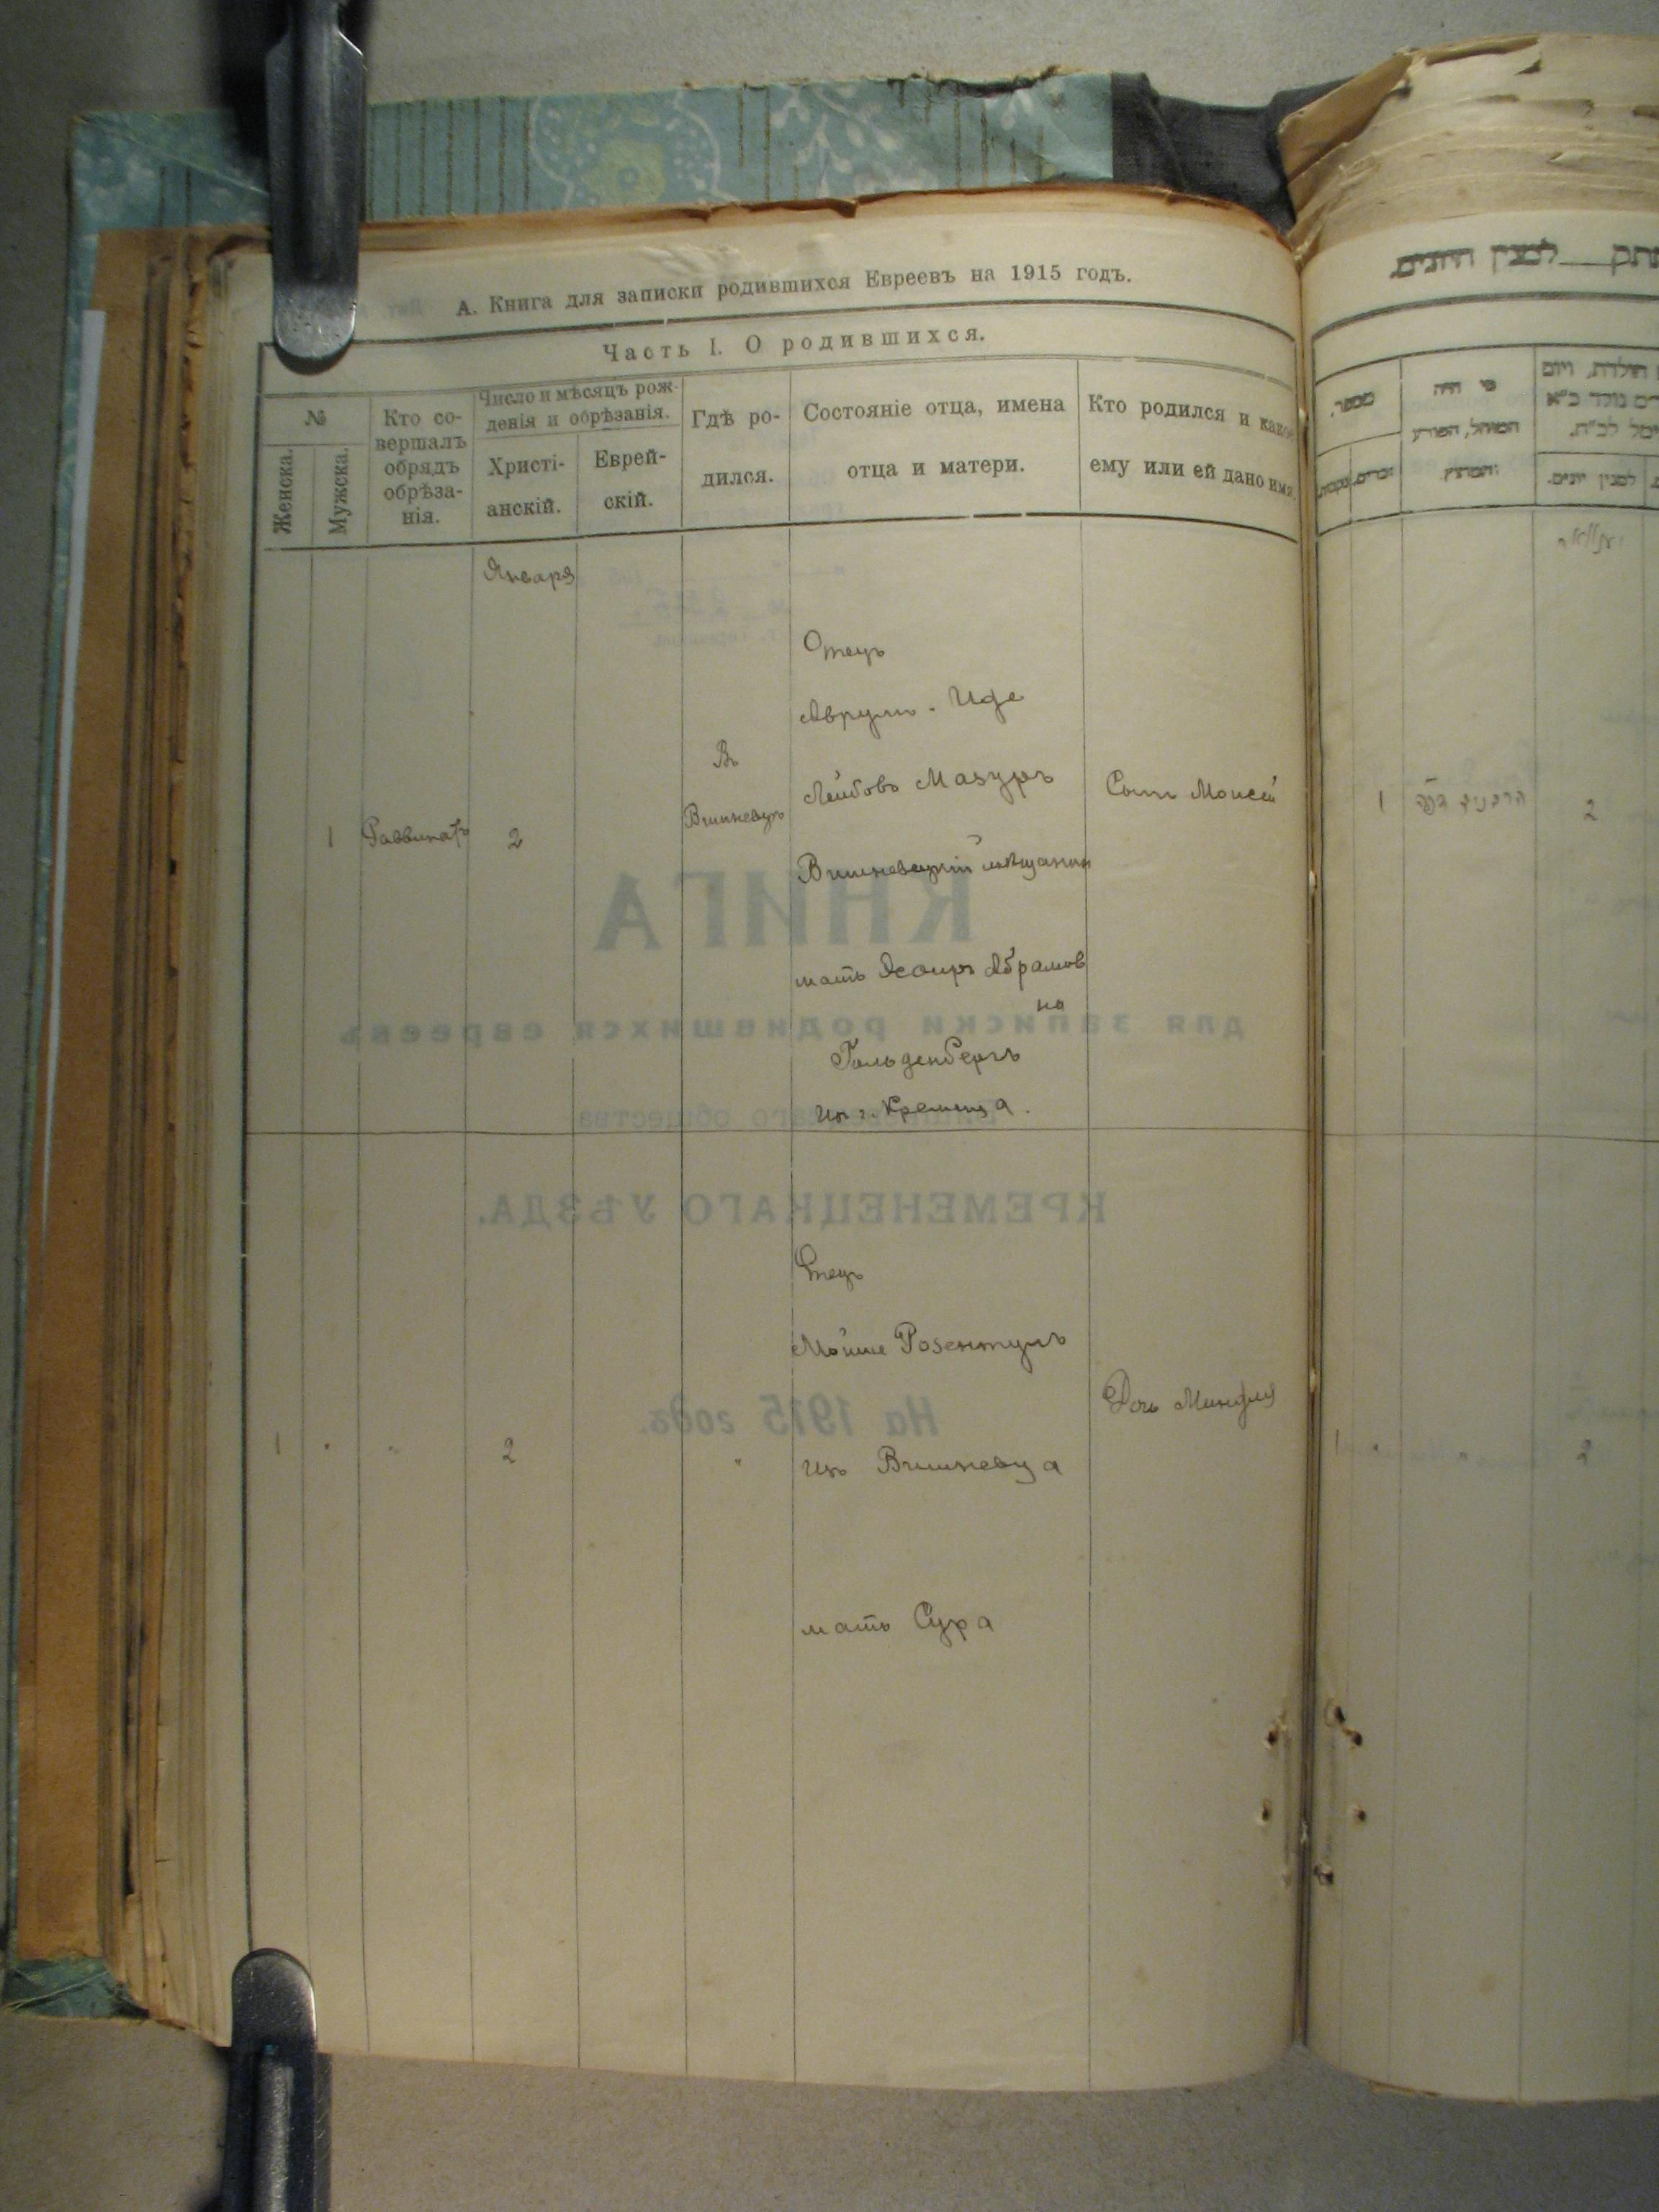 А. Книга для записки родившихся Евреевъ на 1915 годъ.
Часть I. О родившихся.
№
Женска.
Мужска.
Кто со-
вершалъ
обрядъ
обрѣза-
нія.
Число и мѣсяцъ рож-
денія и обрѣзанія.
Христі-
анскій.
Еврей-
скій.
Гдѣ ро-
дился.
Состояніе отца, имена
отца и матери.
Кто родился и какое
ему или ей дано имя.
Января
1
2
Въ
Вишневцѣ
Отецъ
Аврумъ-Иде
Лейбовъ Мазуръ
Вишневецкій мѣщанинъ
мать Абрамов
на
Гольденбергъ
Изъ г. Кременца.
Сынъ Моисей
1 " "
2
"
Отецъ
Мойше
Изъ Вишневца
мать Сура
Дочь
КНИГА
для записки родившихся евреевъ
общества
КРЕМЕНЕЦКАГО УѢЗДА.
На 1915 годъ.
למנין היונים
מספר.
זכרים.
נקבות.
מי היה
המוהל, הפורע
והמוצץ
למנין יונים.
1
2
1
2